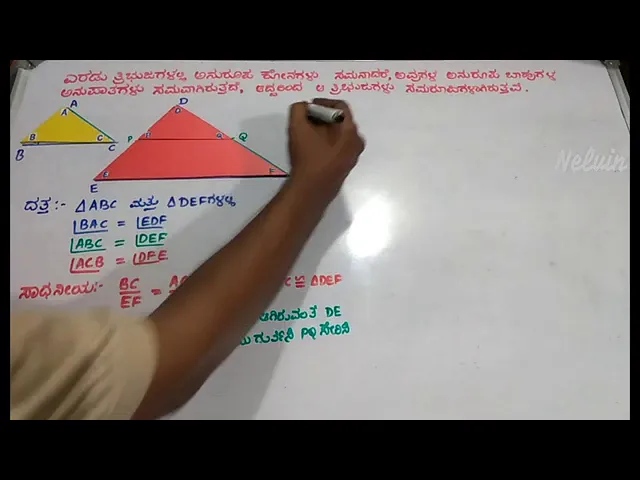 ಎರಡು ತ್ರಿಭುಜಗಳಲ್ಲಿ ಅನುರೂಪ ಕೋನಗಳು ಸಮನಾದರೆ, ಅವುಗಳ ಅನುರೂಪ ಬಾಹುಗಳ
ಅನುಪಾತಗಳು ಸಮವಾಗಿರುತ್ತದೆ, ಆದ್ದರಿಂದ ಆ ತ್ರಿಭುಜಗಳು ಸಮರೂಪಿಗಳಾಗಿರುತ್ತವೆ.
A
A
B
C
B
C
D
D
P
Q
E
F
E
Nelwin
ದತ್ತ:- △ABC ಮತ್ತು △DEFಗಳಲ್ಲಿ
∠BAC = ∠EDF
∠ABC = ∠DEF
∠ACB = ∠DFE
ಸಾಧನೀಯ:- BC/EF = △DEF
ಆಗಿರುವಂತೆ DE
ಗುರ್ತಿಸಿ PQ ಸೇರಿಸಿ